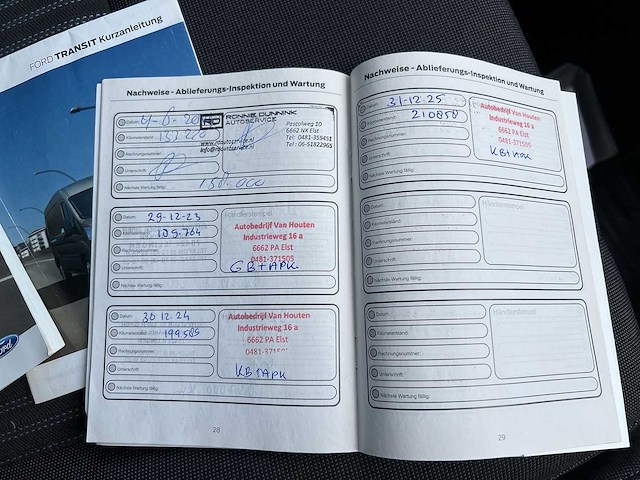 FORD TRANSIT Kurzanleitung
Ford
Nachweise - Ablieferungs-Inspektion und Wartung
Datum:
RD RONNIE DUNNINK
AUTOSERVICE
Pascalweg 10
6662 NX Elst
Tel: 0481-355451
Tel: 06-51822965
www.rdautoservice.nl
info@rdautoservice.nl
Kilometerstand:
Rechnungsnummer:
Unterschrift:
Nächste Wartung fällig:
Datum: 29-12-23
Kilometerstand:
Rechnungsnummer:
Unterschrift:
Nächste Wartung fällig:
Händlerstempel
Autobedrijf Van Houten
Industrieweg 16 a
6662 PA Elst
0481-371505
GB+APK
Datum: 30 12 24
Kilometerstand: 199585
Rechnungsnummer:
Unterschrift:
Nächste Wartung fällig:
Autobedrijf Van Houten
Industrieweg 16 a
6662 PA Elst
KB+APK
28
Nachweise - Ablieferungs-Inspektion und Wartung
Datum: 31-12-25
Kilometerstand: 210858
Rechnungsnummer:
Unterschrift:
Nächste Wartung fällig:
Autobedrijf Van Houten
Industrieweg 16 a
6662 PA Elst
0481-371505
KB+APK
Datum:
Kilometerstand:
Rechnungsnummer:
Unterschrift:
Nächste Wartung fällig:
Händlerstempel
Datum:
Kilometerstand:
Rechnungsnummer:
Unterschrift:
Nächste Wartung fällig:
Händlerstempel
29